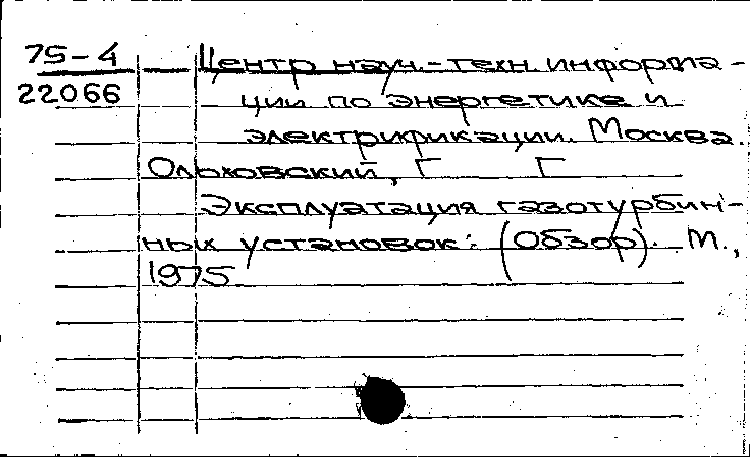 75-4 Центр науч.-техн. информа-
22066 ции по энергетике и
электрификации. Москва.
Ольховский, Г Г
Эксплуатация газотурбин-
ных установок: (Обзор). М.,
1975